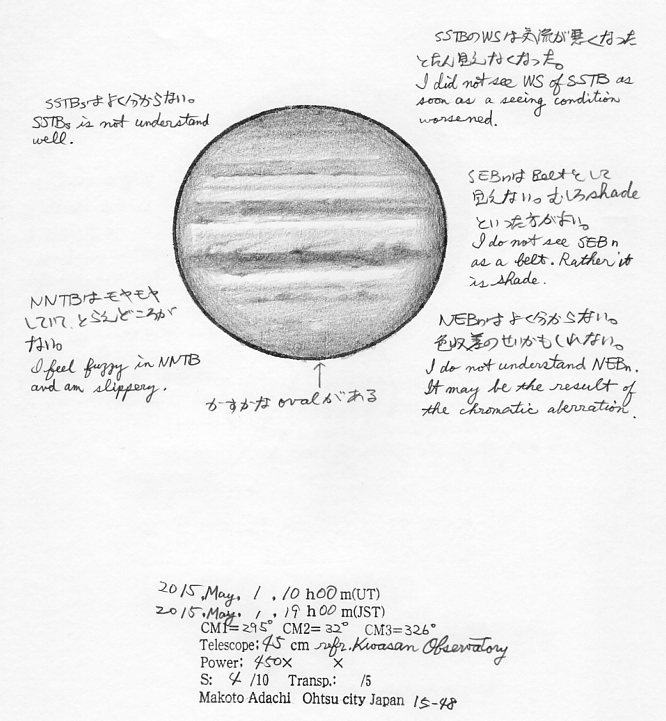 SSTBのWSは気流が悪くなった
とたん見えなくなった。
I did not see WS of SSTB as
soon as a seeing condition
worsened.
SSTBsはよく分からない。
SSTBs is not understand
well.
SEBnはBeltとして
見えない。むしろshade
といった方がよい。
I do not see SEBn
as a belt. Rather it
is shade.
NNTBはモヤモヤ
していて、とらえどころが
ない。
I feel fuzzy in NNTB
and am slippery.
NEBnはよく分からない。
色収差のせいかもしれない。
I do not understand NEBn.
It may be the result of
the chromatic aberration.
↑
かすかなovalがある
2015.May. 1 . 10 h00 m(UT)
2015.May. 1 . 19 h00 m(JST)
CM1=295° CM2= 32° CM3=326°
Telescope: 45 cm refr. Kwasan Observatory
Power: 450× ×
S: 4 /10 Transp.: /5
Makoto Adachi Ohtsu city Japan 15-48